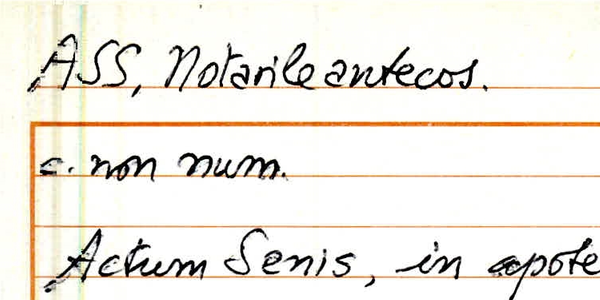 ASS, Notarile antecos.
c. non num.
Actum Senis, in apote